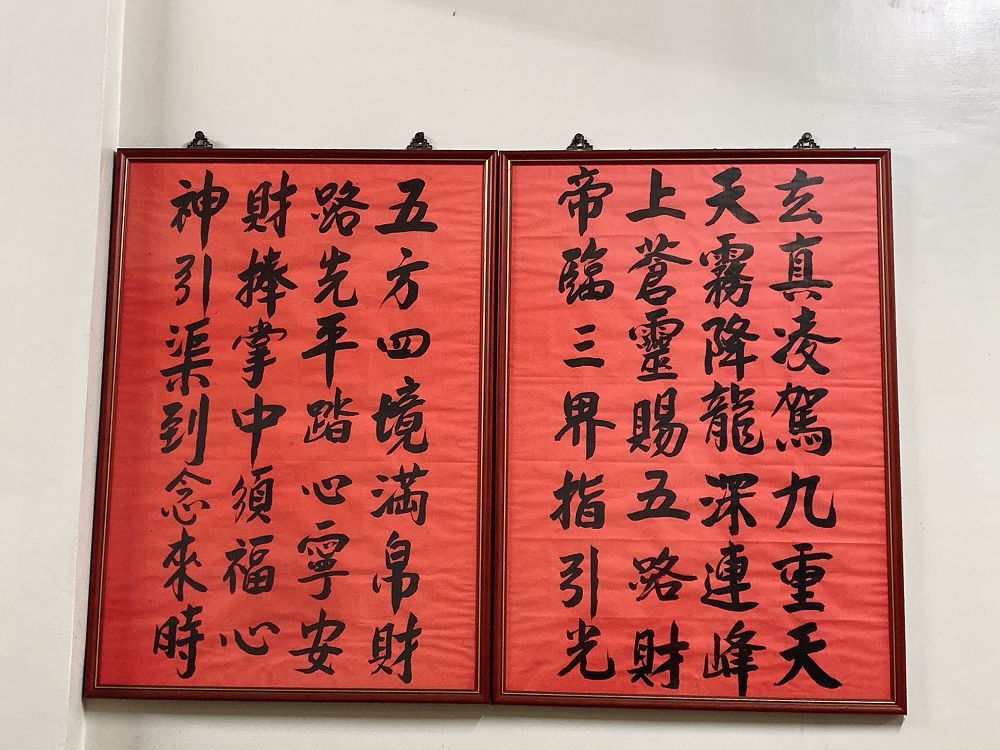 玄真凌駕九重天
天霧降龍深連峰
上蒼靈賜五路財
帝臨三界指引光
五方四境滿帛財
路先平踏心寧安
財捧掌中須福心
神引渠到念來時